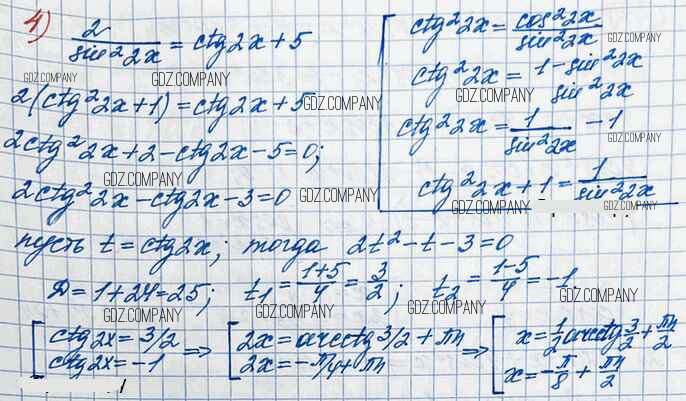 4) 2/sin²2x = ctg2x+5
GDZ.COMPANY GDZ.COMPANY
2(ctg²2x+1)=ctg2x+5
GDZ.COMPANY
2ctg²2x+2-ctg2x-5=0;
GDZ.COMPANY
2ctg²2x-ctg2x-3=0
GDZ.COMPANY
ctg²2x = cos²2x/sin²2x
GDZ.COMPANY
ctg²2x = 1-sin²2x/sin²2x
GDZ.COMPANY
ctg²2x = 1/sin²2x -1
GDZ.COMPANY
ctg²2x+1 = 1/sin²2x
GDZ.COMPANY GDZ.COMPANY
пусть t=ctg2x; тогда 2t²-t-3=0
D=1+24=25; t₁ = 1+5/4 = 3/2; t₂ = 1-5/4 = -1,
GDZ.COMPANY GDZ.COMPANY GDZ.COMPANY GDZ.COMPANY
[ctg2x=3/2 => [2x=arcctg3/2+πn => [x=1/2 arcctg 3/2 + πn/2
ctg2x=-1 2x=-π/4+πn x=-π/8 + πn/2